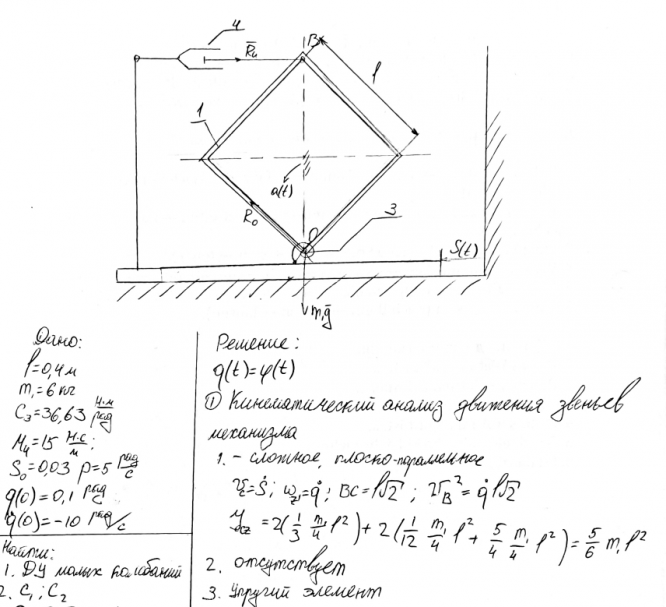 4
R̄₄
B
l
1
a(t)
R₀
3
S(t)
m₁ḡ
Дано:
l=0,4 м
m₁=6 кг
C₃=36,63 Н·м/рад
M₄=15 Н·с/м;
S₀=0,03 p=5 рад/с
q(0)=0,1 рад
q̇(0)=-10 рад/с
Найти:
1. ДУ малых колебаний
2. C₁; C₂
Решение:
q(t)=φ(t)
① Кинематический анализ движения звеньев
механизма
1. - сложное, плоско-параллельное
= Ṡ; ω = q̇; BC = l√2; = q̇l√2
= 2(1/3 m₁/4 l²) + 2(1/12 m₁/4 l² + 5/4 m₁/4 l²) = 5/6 m₁l²
2. отсутствует
3. Упругий элемент